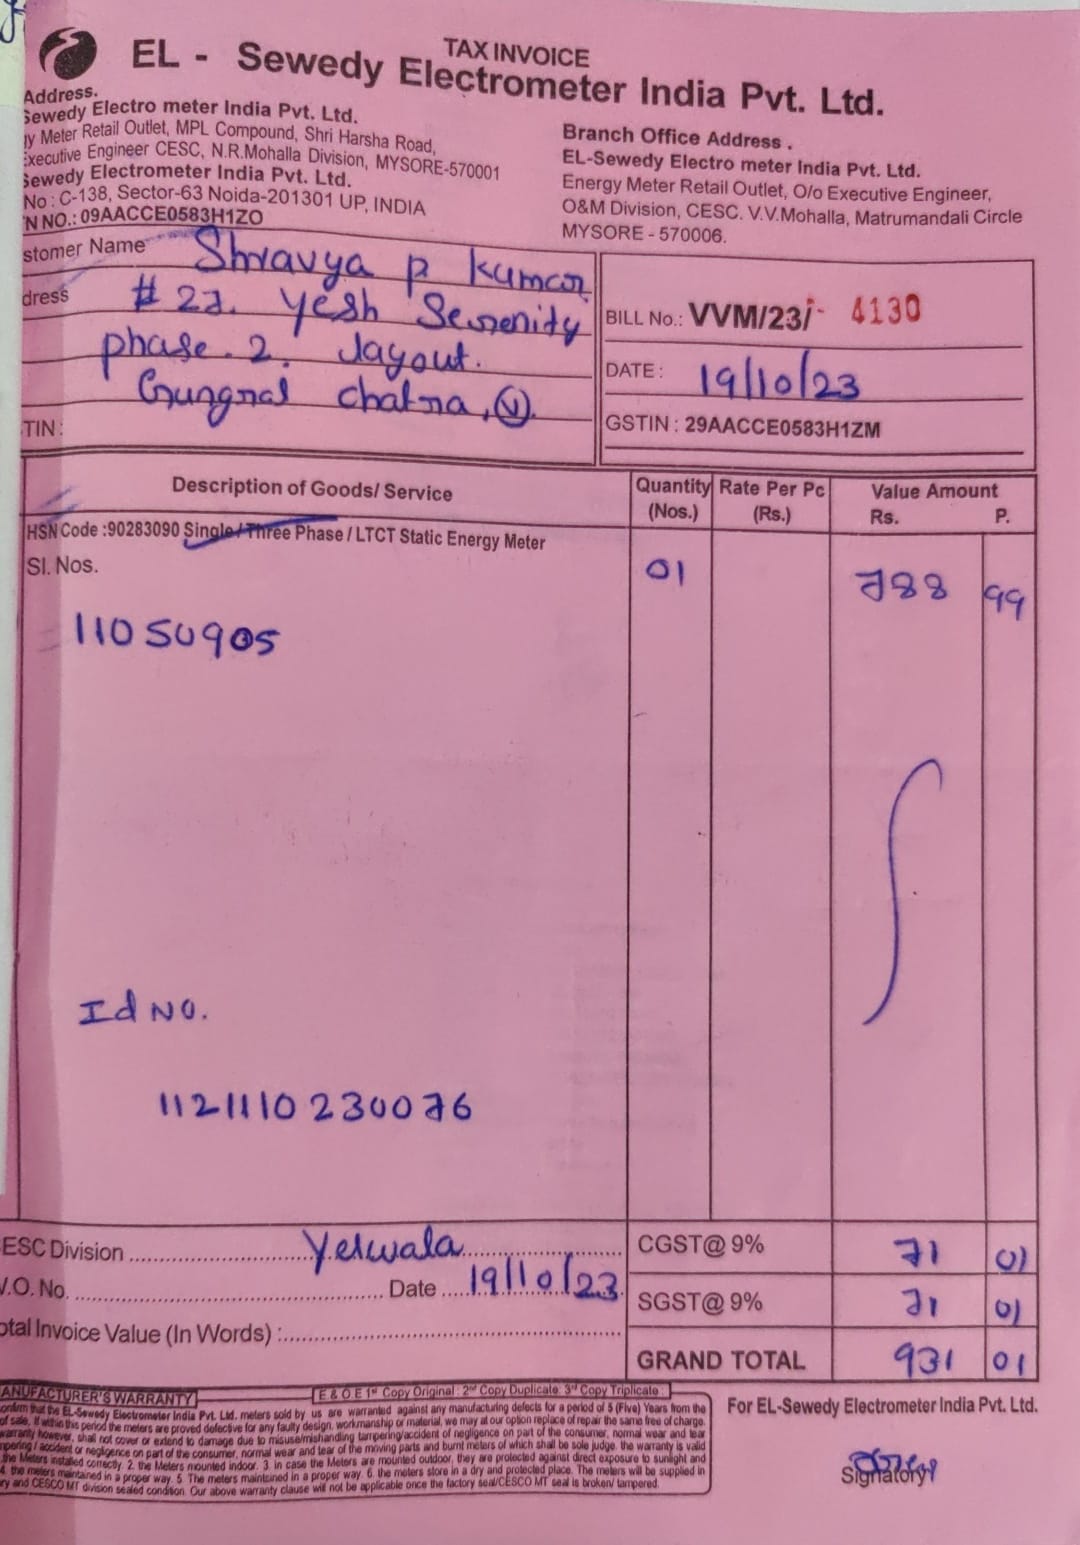 TAX INVOICE
EL - Sewedy Electrometer India Pvt. Ltd.
Address.
Sewedy Electro meter India Pvt. Ltd.
gy Meter Retail Outlet, MPL Compound, Shri Harsha Road,
Executive Engineer CESC, N.R.Mohalla Division, MYSORE-570001
Sewedy Electrometer India Pvt. Ltd.
No : C-138, Sector-63 Noida-201301 UP, INDIA
N NO.: 09AACCE0583H1ZO
Branch Office Address .
EL-Sewedy Electro meter India Pvt. Ltd.
Energy Meter Retail Outlet, O/o Executive Engineer,
O&M Division, CESC. V.V.Mohalla, Matrumandali Circle
MYSORE - 570006.
stomer Name Shravya p kumar
dress # 27. Yesh Serenity
phase. 2. Layout.
Gungral chatra, (V).
TIN :
BILL No.: VVM/23/- 4130
DATE : 19/10/23
GSTIN : 29AACCE0583H1ZM
Description of Goods/ Service Quantity (Nos.) Rate Per Pc (Rs.) Value Amount Rs. P.
HSN Code :90283090 Single / Three Phase / LTCT Static Energy Meter
Sl. Nos. 01 788 99
11050905
Id No.
1121110230076
ESC Division Yelwala CGST@ 9% 71 01
V.O. No. Date 19/10/23 SGST@ 9% 71 01
otal Invoice Value (In Words) : GRAND TOTAL 931 01
E & O E 1st Copy Original : 2nd Copy Duplicate: 3rd Copy Triplicate
ANUFACTURER'S WARRANTY
onfirm that the EL-Sewedy Electrometer India Pvt. Ltd. meters sold by us are warranted against any manufacturing defects for a period of 5 (Five) Years from the
of sale. If within this period the meters are proved defective for any faulty design, workmanship or material, we may at our option replace of repair the same free of charge.
warranty however, shall not cover or extend to damage due to misuse/mishanding tampering/accident of negligence on part of the consumer, normal wear and tear
mpering / accident or negligence on part of the consumer, normal wear and tear of the moving parts and burnt meters of which shall be sole judge. the warranty is valid
the Meters installed correctly. 2. the Meters mounted indoor. 3. in case the Meters are mounted outdoor, they are protected against direct exposure to sunlight and
4. the meters maintained in a proper way. 5. The meters maintained in a proper way. 6. the meters store in a dry and protected place. The meters will be supplied in
ry and CESCO MT division sealed condition. Our above warranty clause will not be applicable once the factory seal/CESCO MT seal is broken/ tampered.
For EL-Sewedy Electrometer India Pvt. Ltd.
Signatory